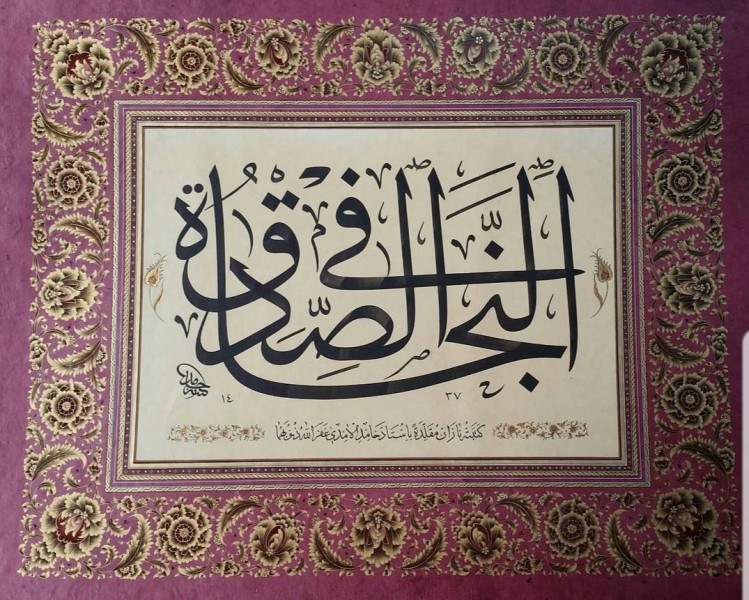 النَّجاة في الصِّدق
١٤٣٧
كتبته نازان مقلدة باستاذ حامد الآمدي غفر الله ذنوبهما